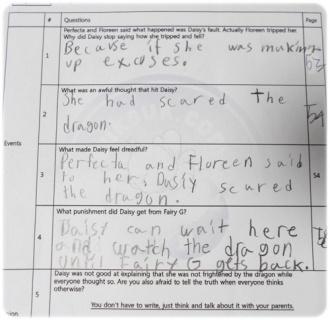 # Questions Page
Perfecta and Floreen said what happened was Daisy's fault. Actually Floreen tripped her.
Why did Daisy stop saying how she tripped and fell?
1
Because if she was making
up excuses.
What was an awful thought that hit Daisy?
2
She had scared the
dragon.
Events
What made Daisy feel dreadful?
3
Perfecta and Floreen said
to her, Daisy scared
the dragon.
54
What punishment did Daisy get from Fairy G?
4
Daisy can wait here
and watch the dragon
until Fairy G gets back.
Daisy was not good at explaining that she was not frightened by the dragon while
everyone thought so. Are you also afraid to tell the truth when everyone thinks
5
otherwise?
You don't have to write, just think and talk about it with your parents.